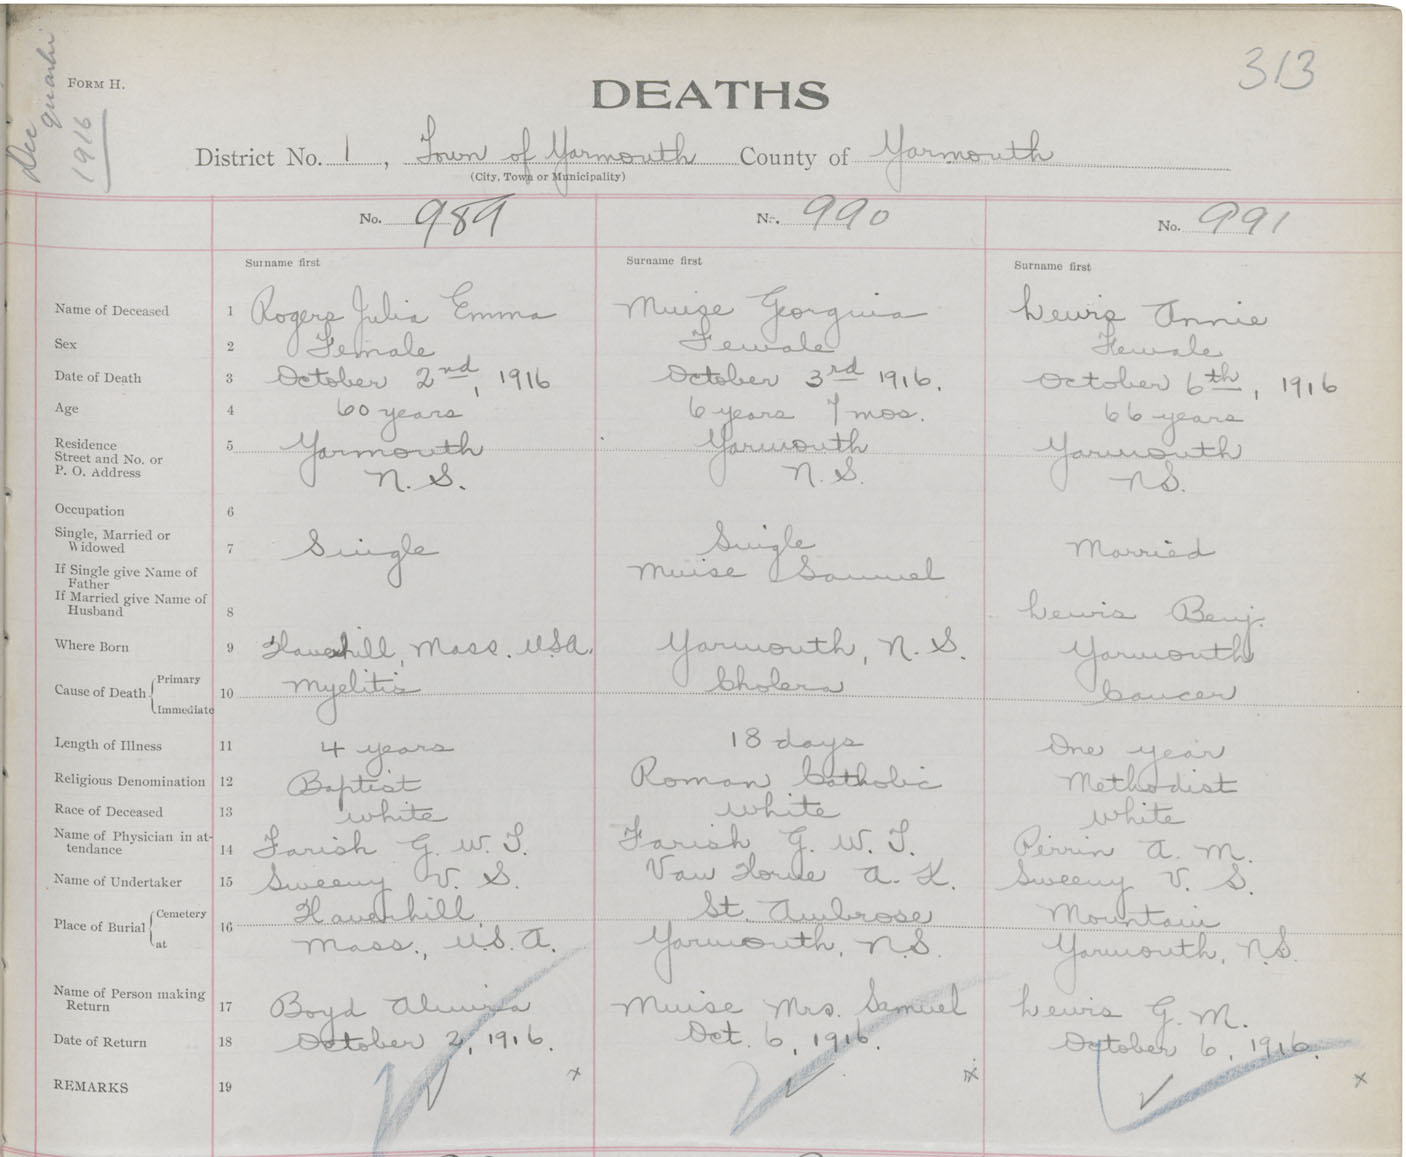 313
Dec quarter 1916
FORM H.
DEATHS
District No. 1, Town of Yarmouth County of Yarmouth
(City, Town or Municipality)
No. 989 No. 990 No. 991
Surname first Surname first Surname first
Name of Deceased 1 Rogers Julia Emma Muise Georgina Lewis Annie
Sex 2 Female Female Female
Date of Death 3 October 2nd, 1916 October 3rd 1916. October 6th, 1916
Age 4 60 years 6 years 7 mos. 66 years
Residence 5 Yarmouth Yarmouth Yarmouth
Street and No. or
P. O. Address N. S. N. S. N S.
Occupation 6
Single, Married or
Widowed 7 Single Single Married
If Single give Name of
Father Muise Samuel
If Married give Name of
Husband 8 Lewis Benj.
Where Born 9 Haverhill, Mass. U.S.A. Yarmouth, N. S. Yarmouth
Cause of Death Primary 10 Myelitis Cholera Cancer
Immediate
Length of Illness 11 4 years 18 days One year
Religious Denomination 12 Baptist Roman Catholic Methodist
Race of Deceased 13 white white white
Name of Physician in at-
tendance 14 Farish G. W. T. Farish G. W. T. Perrin A. M.
Name of Undertaker 15 Sweeny V. S. Van Horne A. K. Sweeny V. S.
Place of Burial Cemetery 16 Haverhill St. Ambrose Mountain
at Mass., U.S.A. Yarmouth, N.S. Yarmouth, N.S.
Name of Person making
Return 17 Boyd Almira Muise Mrs. Samuel Lewis G. M.
Date of Return 18 October 2, 1916. Oct. 6, 1916. October 6, 1916.
REMARKS 19 x x x